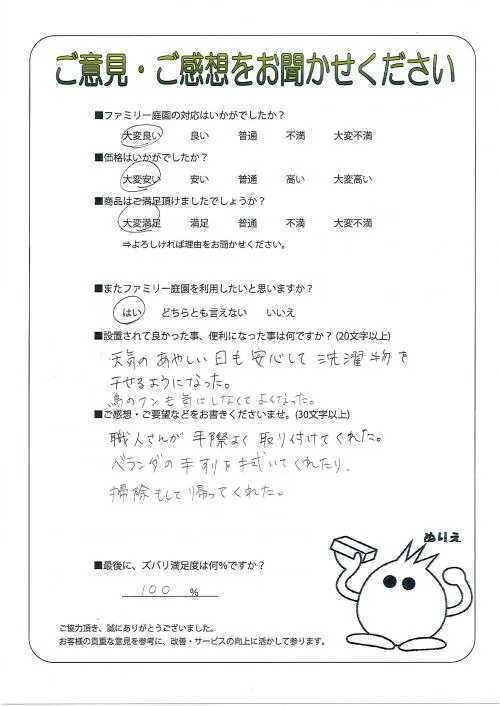 ご意見・ご感想をお聞かせください
■ファミリー庭園の対応はいかがでしたか？
大変良い 良い 普通 不満 大変不満
■価格はいかがでしたか？
大変安い 安い 普通 高い 大変高い
■商品はご満足頂けましたでしょうか？
大変満足 満足 普通 不満 大変不満
⇒よろしければ理由をお聞かせください。
■またファミリー庭園を利用したいと思いますか？
はい どちらとも言えない いいえ
■設置されて良かった事、便利になった事は何ですか？(20文字以上)
天気のあやしい日も安心して洗濯物を
干せるようになった。
鳥のフンも気にしなくてよくなった。
■ご感想・ご要望などをお書きくださいませ。(30文字以上)
職人さんが手際よく取り付けてくれた。
ベランダの手すりを拭いてくれたり、
掃除もして帰ってくれた。
ぬりえ
■最後に、ズバリ満足度は何％ですか？
100 %
ご協力頂き、誠にありがとうございました。
お客様の貴重な意見を参考に、改善・サービスの向上に活かして参ります。